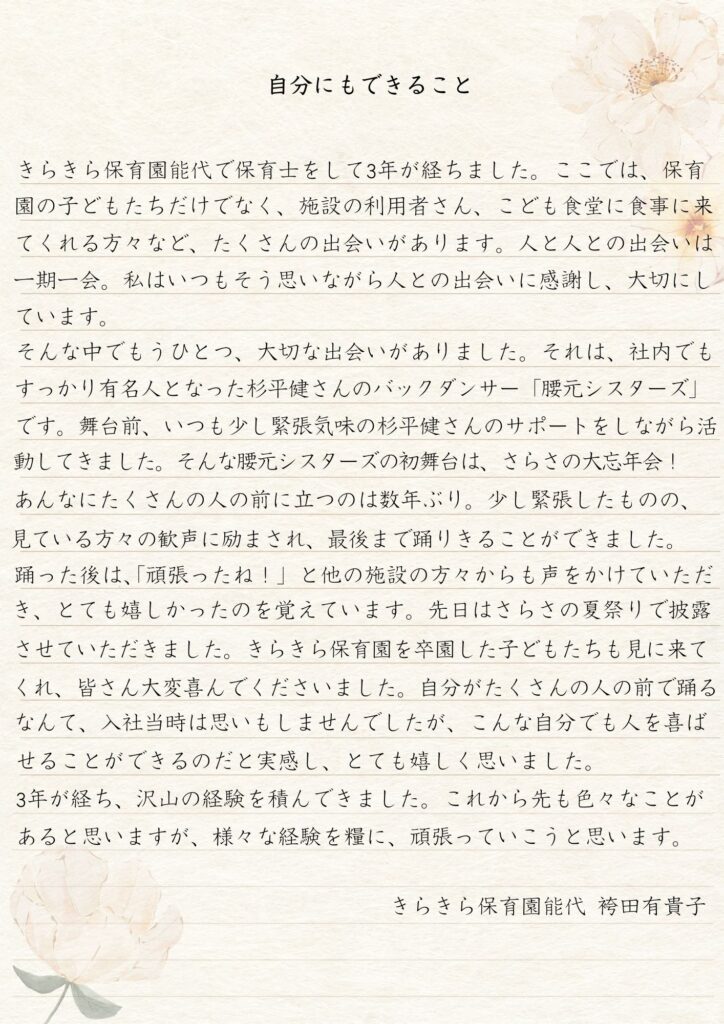 自分にもできること
きらきら保育園能代で保育士をして3年が経ちました。ここでは、保育
園の子どもたちだけでなく、施設の利用者さん、こども食堂に食事に来
てくれる方々など、たくさんの出会いがあります。人と人との出会いは
一期一会。私はいつもそう思いながら人との出会いに感謝し、大切にし
ています。
そんな中でもうひとつ、大切な出会いがありました。それは、社内でも
すっかり有名人となった杉平健さんのバックダンサー「腰元シスターズ」
です。舞台前、いつも少し緊張気味の杉平健さんのサポートをしながら活
動してきました。そんな腰元シスターズの初舞台は、さらさの大忘年会！
あんなにたくさんの人の前に立つのは数年ぶり。少し緊張したものの、
見ている方々の歓声に励まされ、最後まで踊りきることができました。
踊った後は、「頑張ったね！」と他の施設の方々からも声をかけていただ
き、とても嬉しかったのを覚えています。先日はさらさの夏祭りで披露
させていただきました。きらきら保育園を卒園した子どもたちも見に来て
くれ、皆さん大変喜んでくださいました。自分がたくさんの人の前で踊る
なんて、入社当時は思いもしませんでしたが、こんな自分でも人を喜ば
せることができるのだと実感し、とても嬉しく思いました。
3年が経ち、沢山の経験を積んできました。これから先も色々なことが
あると思いますが、様々な経験を糧に、頑張っていこうと思います。
きらきら保育園能代 袴田有貴子